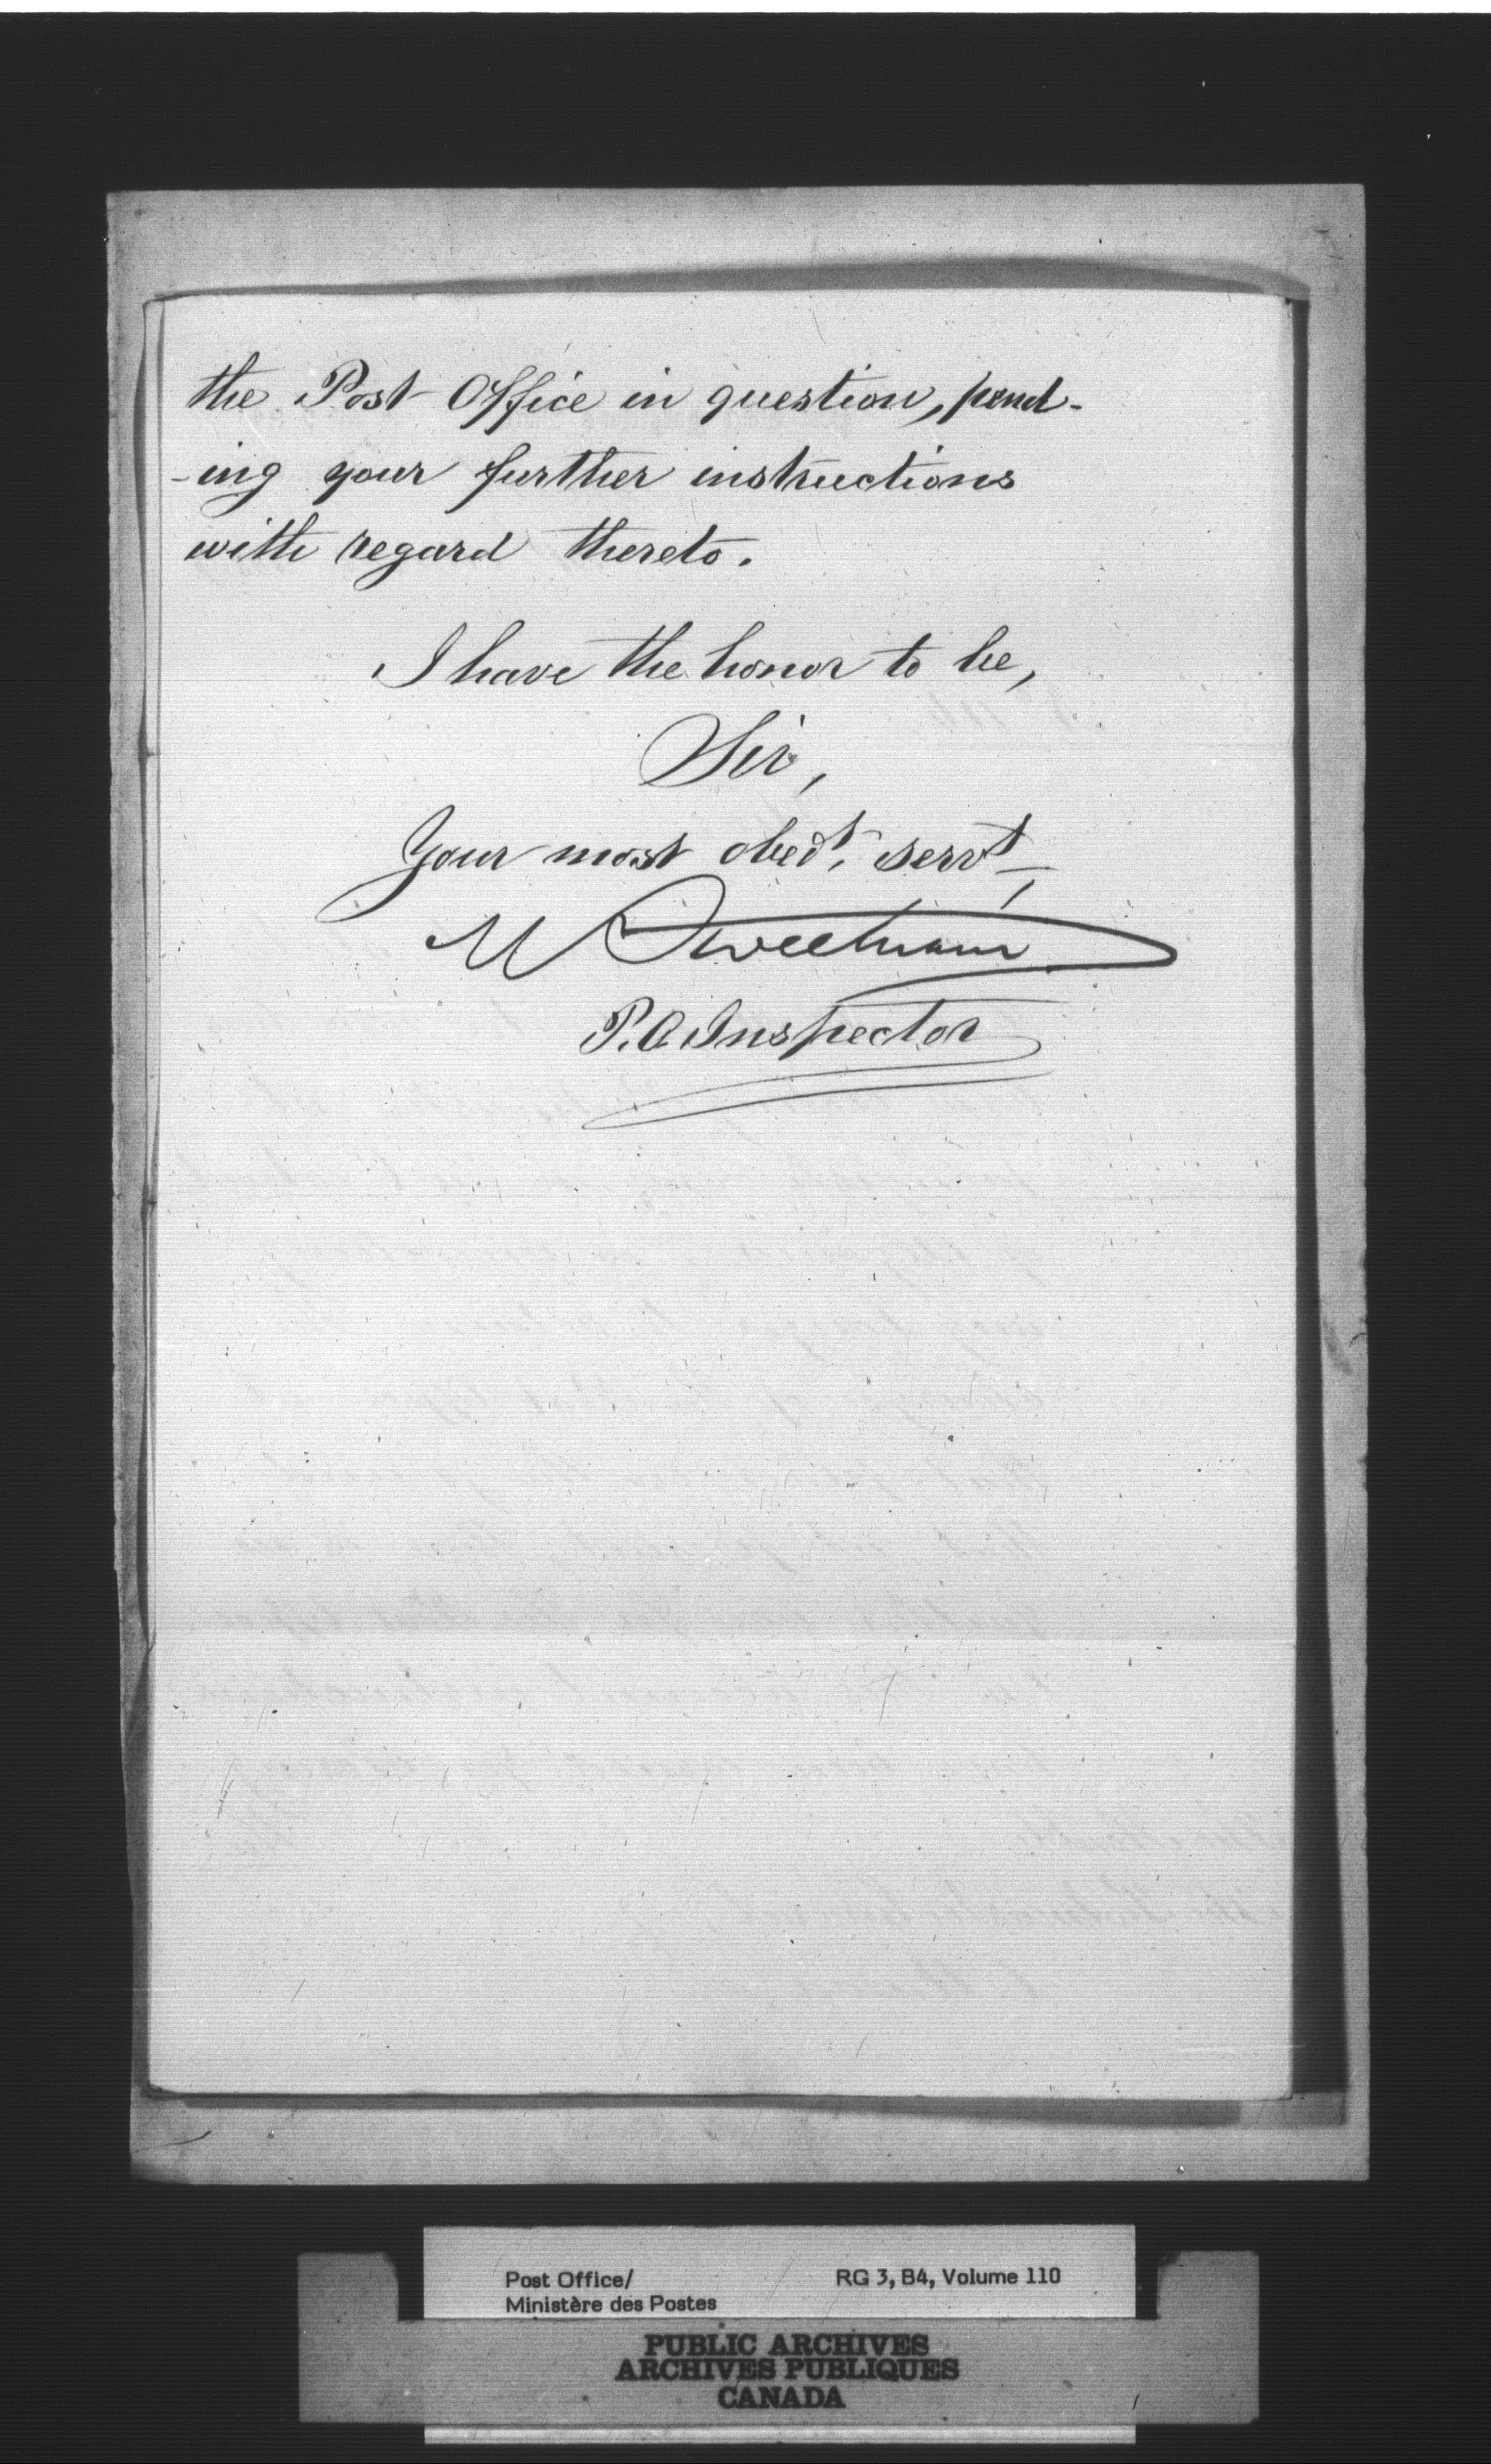 the Post Office in question, pend-
-ing your further instructions
with regard thereto.
I have the honor to be,
Sir,
Your most obedt. servt,
M Sweetnam
P.O. Inspector
Post Office/
Ministère des Postes
RG 3, B4, Volume 110
PUBLIC ARCHIVES
ARCHIVES PUBLIQUES
CANADA